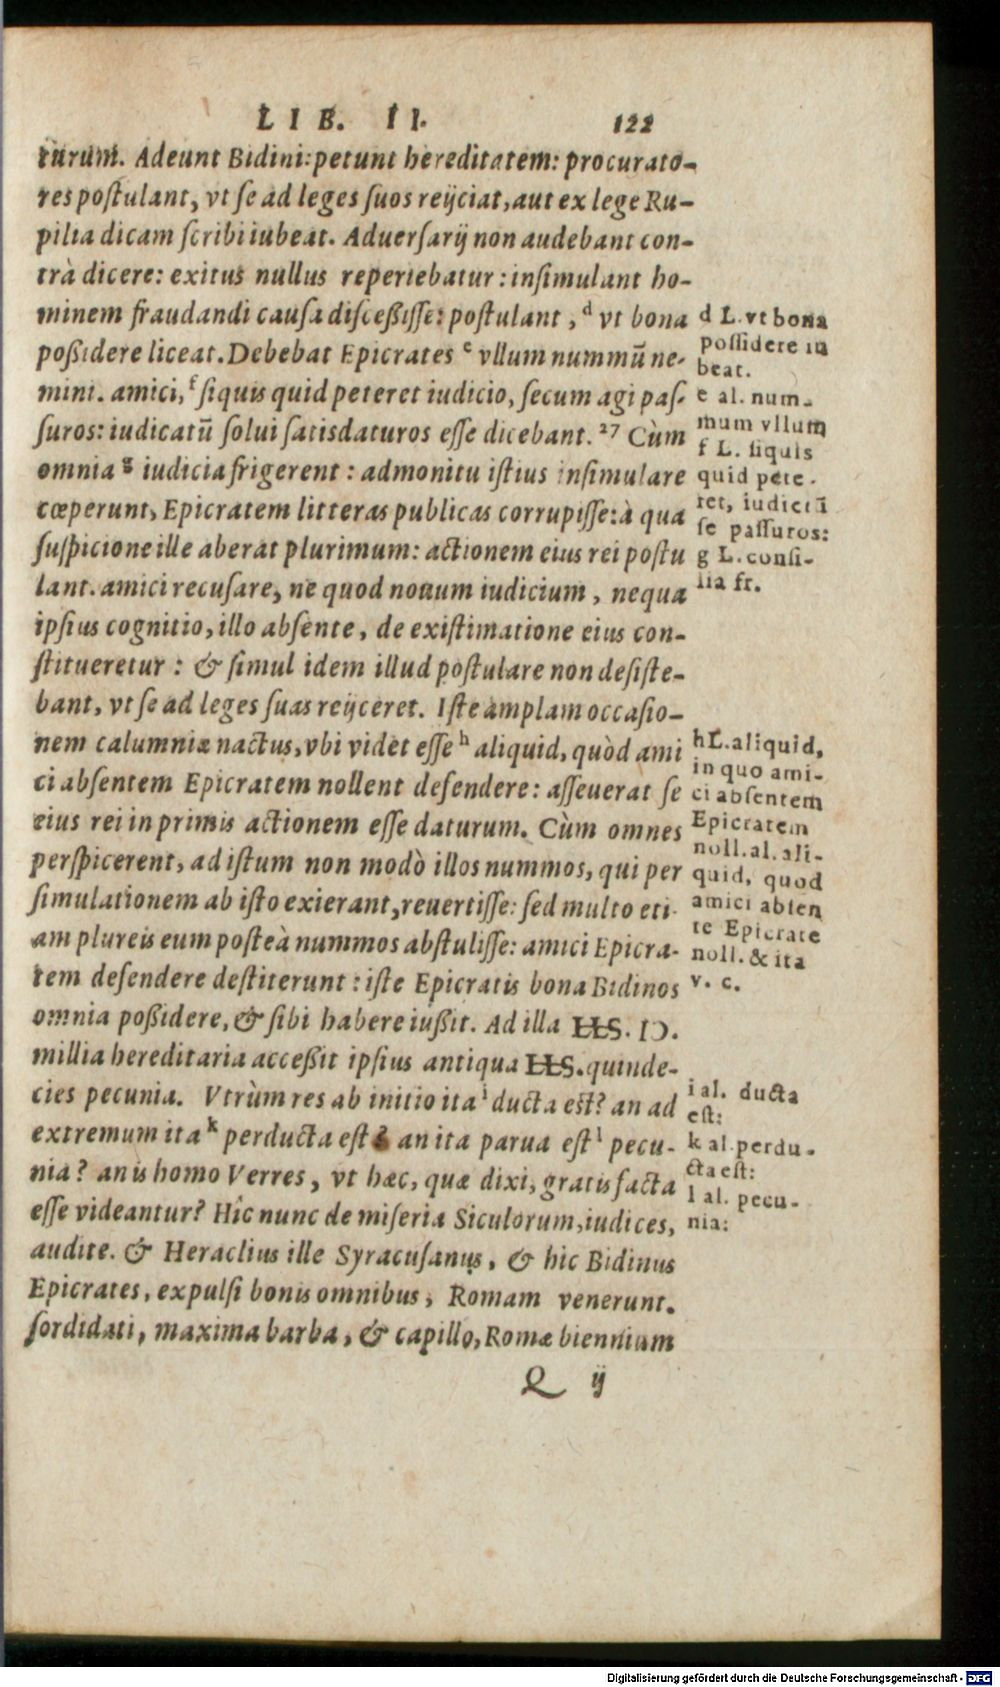 LIB. II. 122
turum. Adeunt Bidini: petunt hereditatem: procurato-
res poſtulant, vt ſe ad leges ſuos reijciat, aut ex lege Ru-
pilia dicam ſcribi iubeat. Aduerſarij non audebant con-
trà dicere: exitus nullus reperiebatur: inſimulant ho-
minem fraudandi cauſa diſceßiſſe: poſtulant, ᵈ vt bona
poßidere liceat. Debebat Epicrates ᵉ vllum nummũ ne-
mini. amici, ᶠ ſiquis quid peteret iudicio, ſecum agi paſ-
ſuros: iudicatũ ſolui ſatisdaturos eſſe dicebant. ²⁷ Cùm
omnia ᵍ iudicia frigerent: admonitu iſtius inſimulare
cœperunt, Epicratem litteras publicas corrupiſſe: à qua
ſuſpicione ille aberat plurimum: actionem eius rei poſtu
lant. amici recuſare, ne quod nouum iudicium, nequa
ipſius cognitio, illo abſente, de exiſtimatione eius con-
ſtitueretur: & ſimul idem illud poſtulare non deſiſte-
bant, vt ſe ad leges ſuas reijceret. Iſte amplam occaſio-
nem calumniæ nactus, vbi videt eſſe ʰ aliquid, quòd ami
ci abſentem Epicratem nollent defendere: aſſeuerat ſe
eius rei in primis actionem eſſe daturum. Cùm omnes
perſpicerent, ad iſtum non modò illos nummos, qui per
ſimulationem ab iſto exierant, reuertiſſe: ſed multo eti-
am plureis eum poſteà nummos abſtuliſſe: amici Epicra-
tem defendere deſtiterunt: iſte Epicratis bona Bidinos
omnia poßidere, & ſibi habere iußit. Ad illa HS. IↃ.
millia hereditaria acceßit ipſius antiqua HS. quinde-
cies pecunia. Vtrùm res ab initio ita ⁱ ducta eſt? an ad
extremum ita ᵏ perducta eſt? an ita parua eſt ˡ pecu-
nia? an is homo Verres, vt hæc, quæ dixi, gratis facta
eſſe videantur? Hîc nunc de miſeria Siculorum, iudices,
audite. & Heraclius ille Syracuſanus, & hic Bidinus
Epicrates, expulſi bonis omnibus, Romam venerunt.
ſordidati, maxima barba, & capillo, Romæ biennium
Q ij
d L. vt bona
poſſidere iu
beat.
e al. num-
mum vllum
f L. ſiquis
quid pete-
ret, iudiciũ
ſe paſſuros:
g L. conſi-
lia fr.
h L. aliquid,
in quo ami-
ci abſentem
Epicratem
noll. al. ali-
quid, quod
amici abſen
te Epicrate
noll. & ita
v. c.
i al. ducta
eſt:
k al. perdu-
cta eſt:
l al. pecu-
nia:
Digitalisierung gefördert durch die Deutsche Forschungsgemeinschaft - DFG